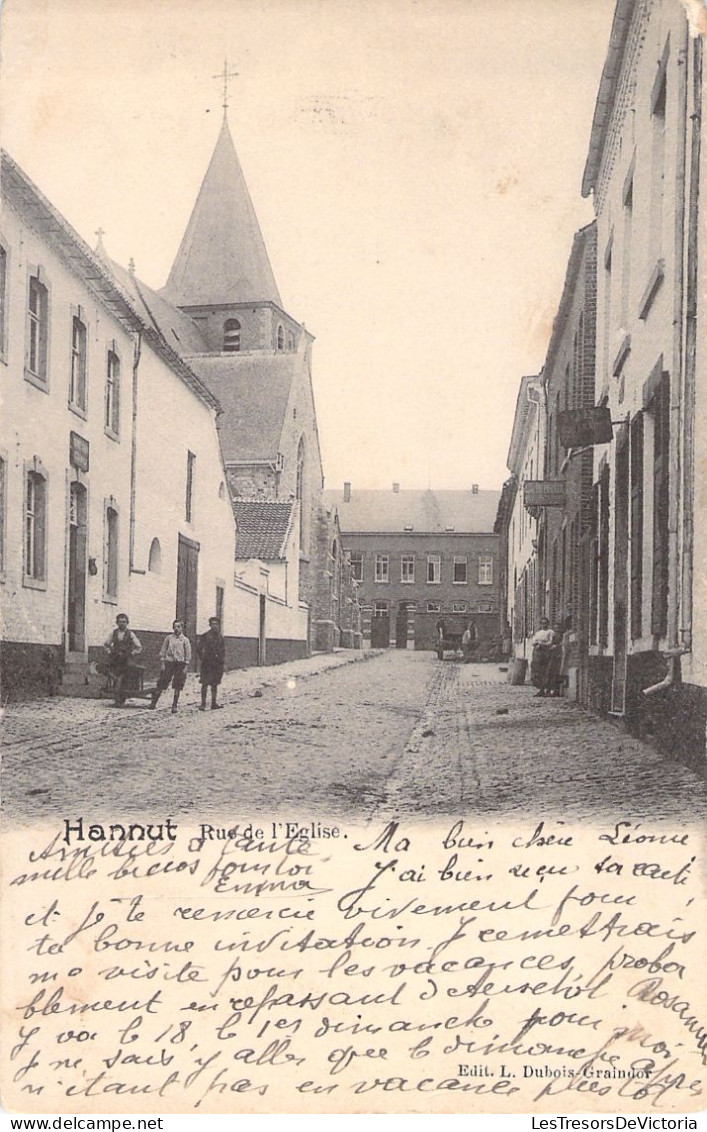 Hannut Rue de l'Eglise.
Amitiés à tante
mille bicos pour toi
Emma
Ma bien chère Léonie
J'ai bien reçu ta carte
et je te remercie vivement pour
ta bonne invitation. Je remettrais
ma visite pour les vacances, proba
blement en repassant d'Aerschot Rosanna
y va le 18 le 1er dimanche pour moi
je ne sais y aller que le dimanche après
n'étant pas en vacance plus tot
Edit. L. Dubois-Graindor
www.LesTresorsDeVictoria.com